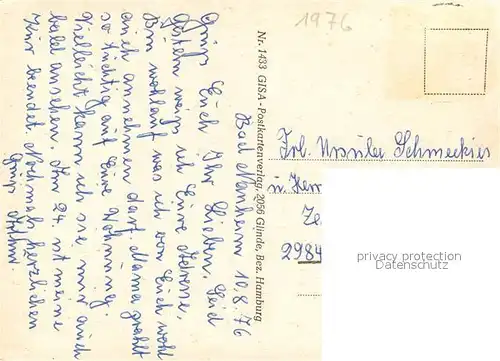 1976
Nr. 1433 GISA-Postkartenverlag, 2056 Glinde, Bez. Hamburg
Bad Nauheim 10.8.76
Grüß Euch Ihr Lieben. Seid
gestern weiß ich Eure Adresse.
Bin wohlauf was ich von Euch wohl
auch annehmen darf. Mama prahlt
so tüchtig auf Eure Wohnung.
Vielleicht kann ich sie mir auch
bald ansehen. Am 24. ist meine
Kur beendet. Nochmals herzlichen
Gruß
Frl. Ursula Schmeckies
u. Herr
2984
privacy protection
Datenschutz